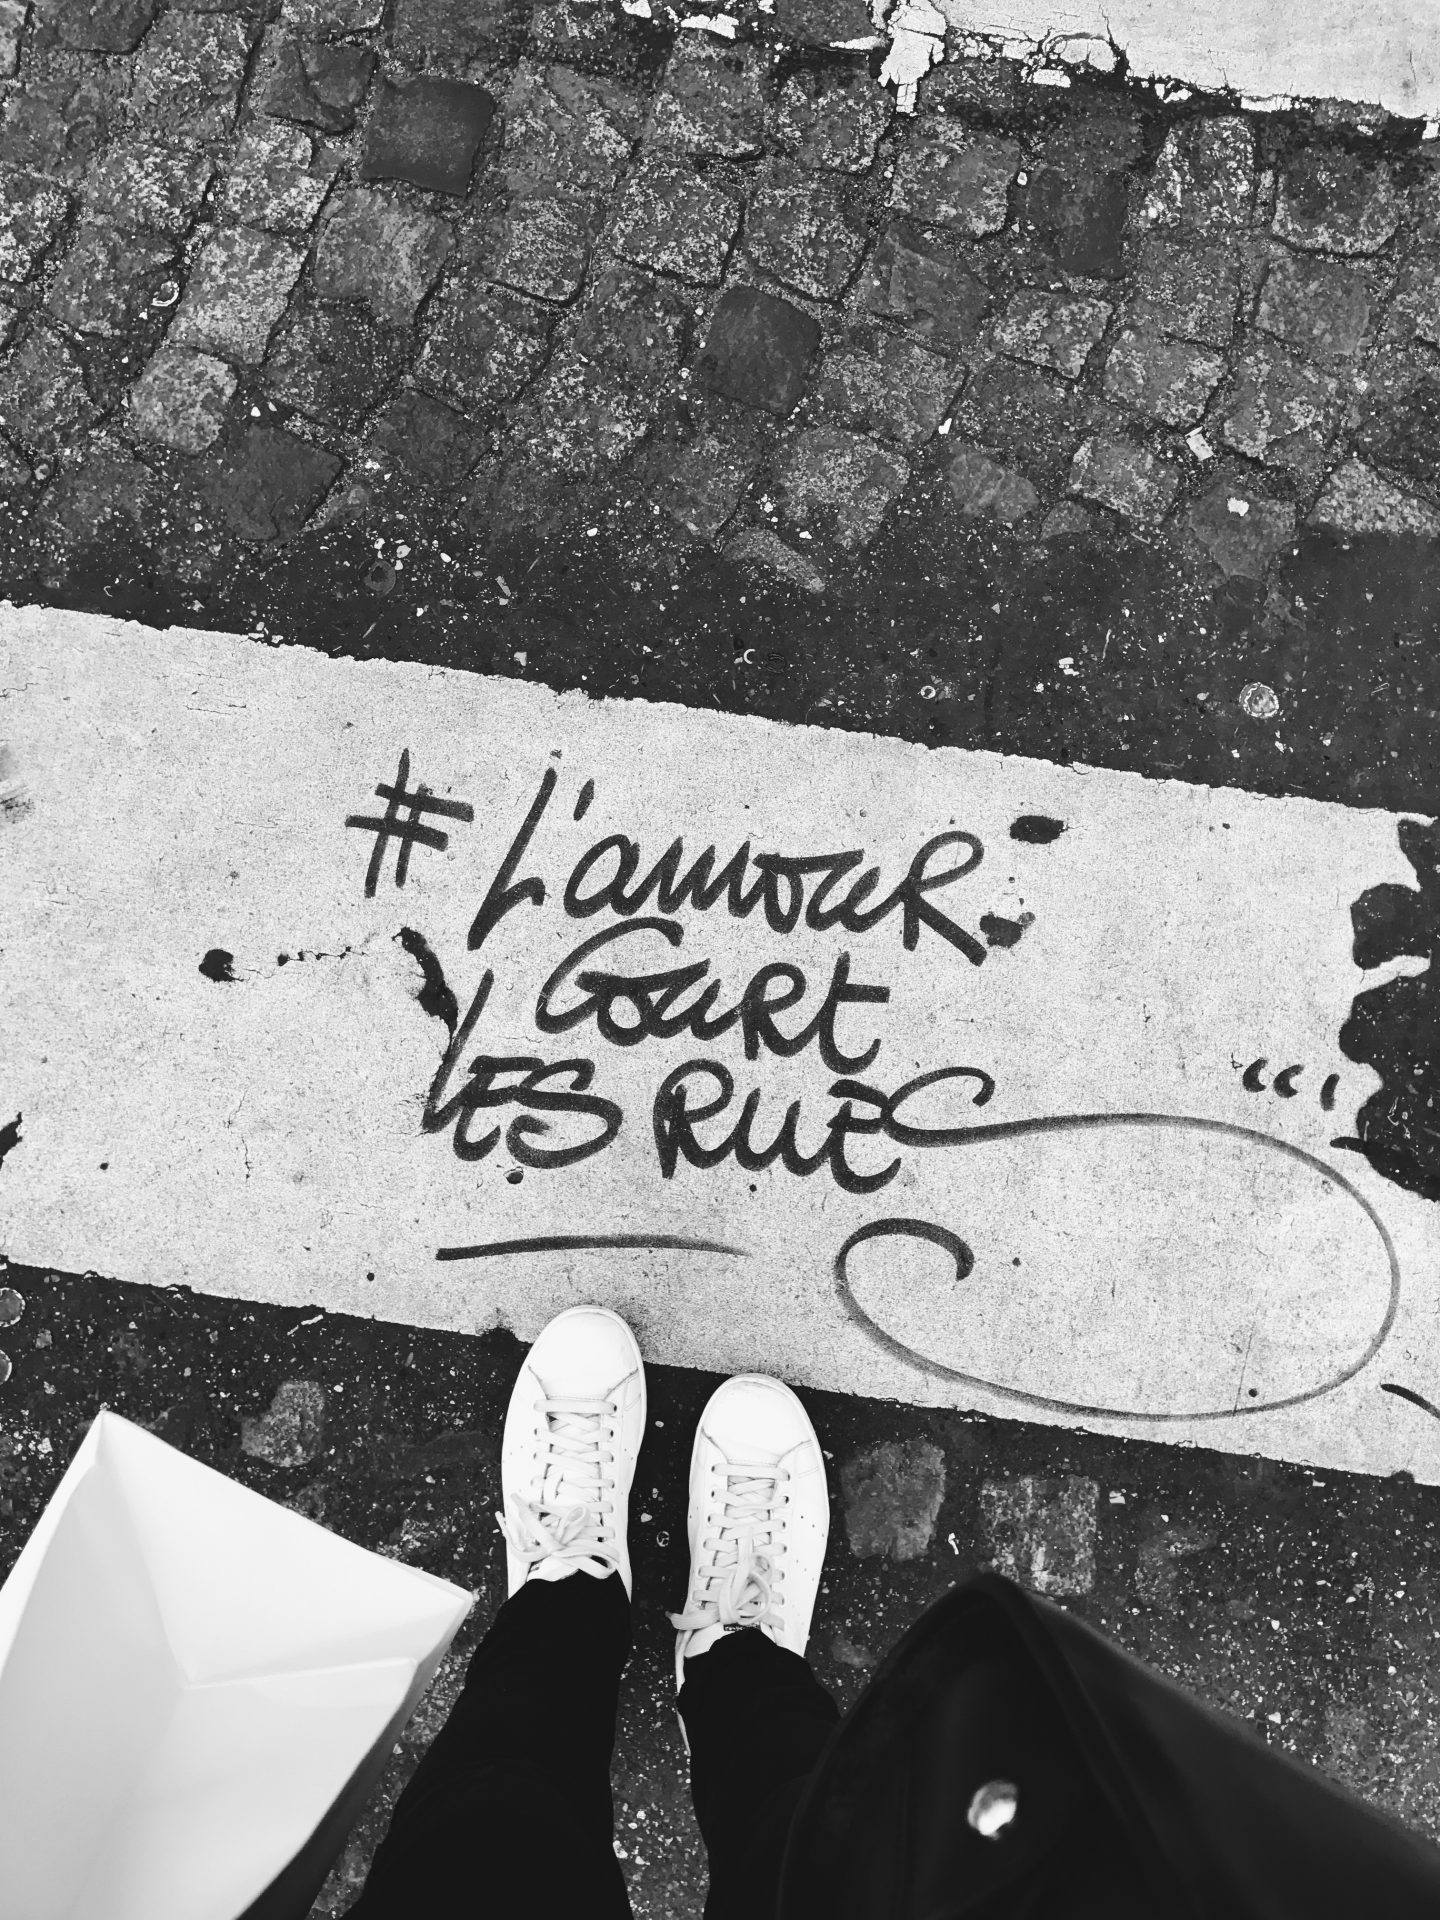 #L'amouR
CouRt
LES RUES